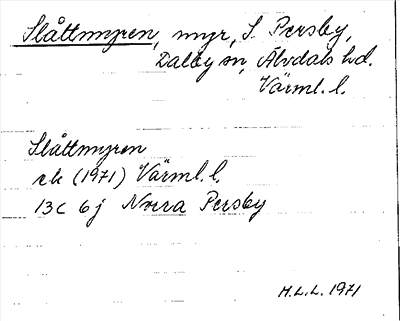 Slåttmyren, myr, S. Persby,
Dalby sn, Älvdals hd.
Värml. l.
Slåttmyren
ek (1971) Värml. l.
13C 6j Norra Persby
M.L.L. 1971